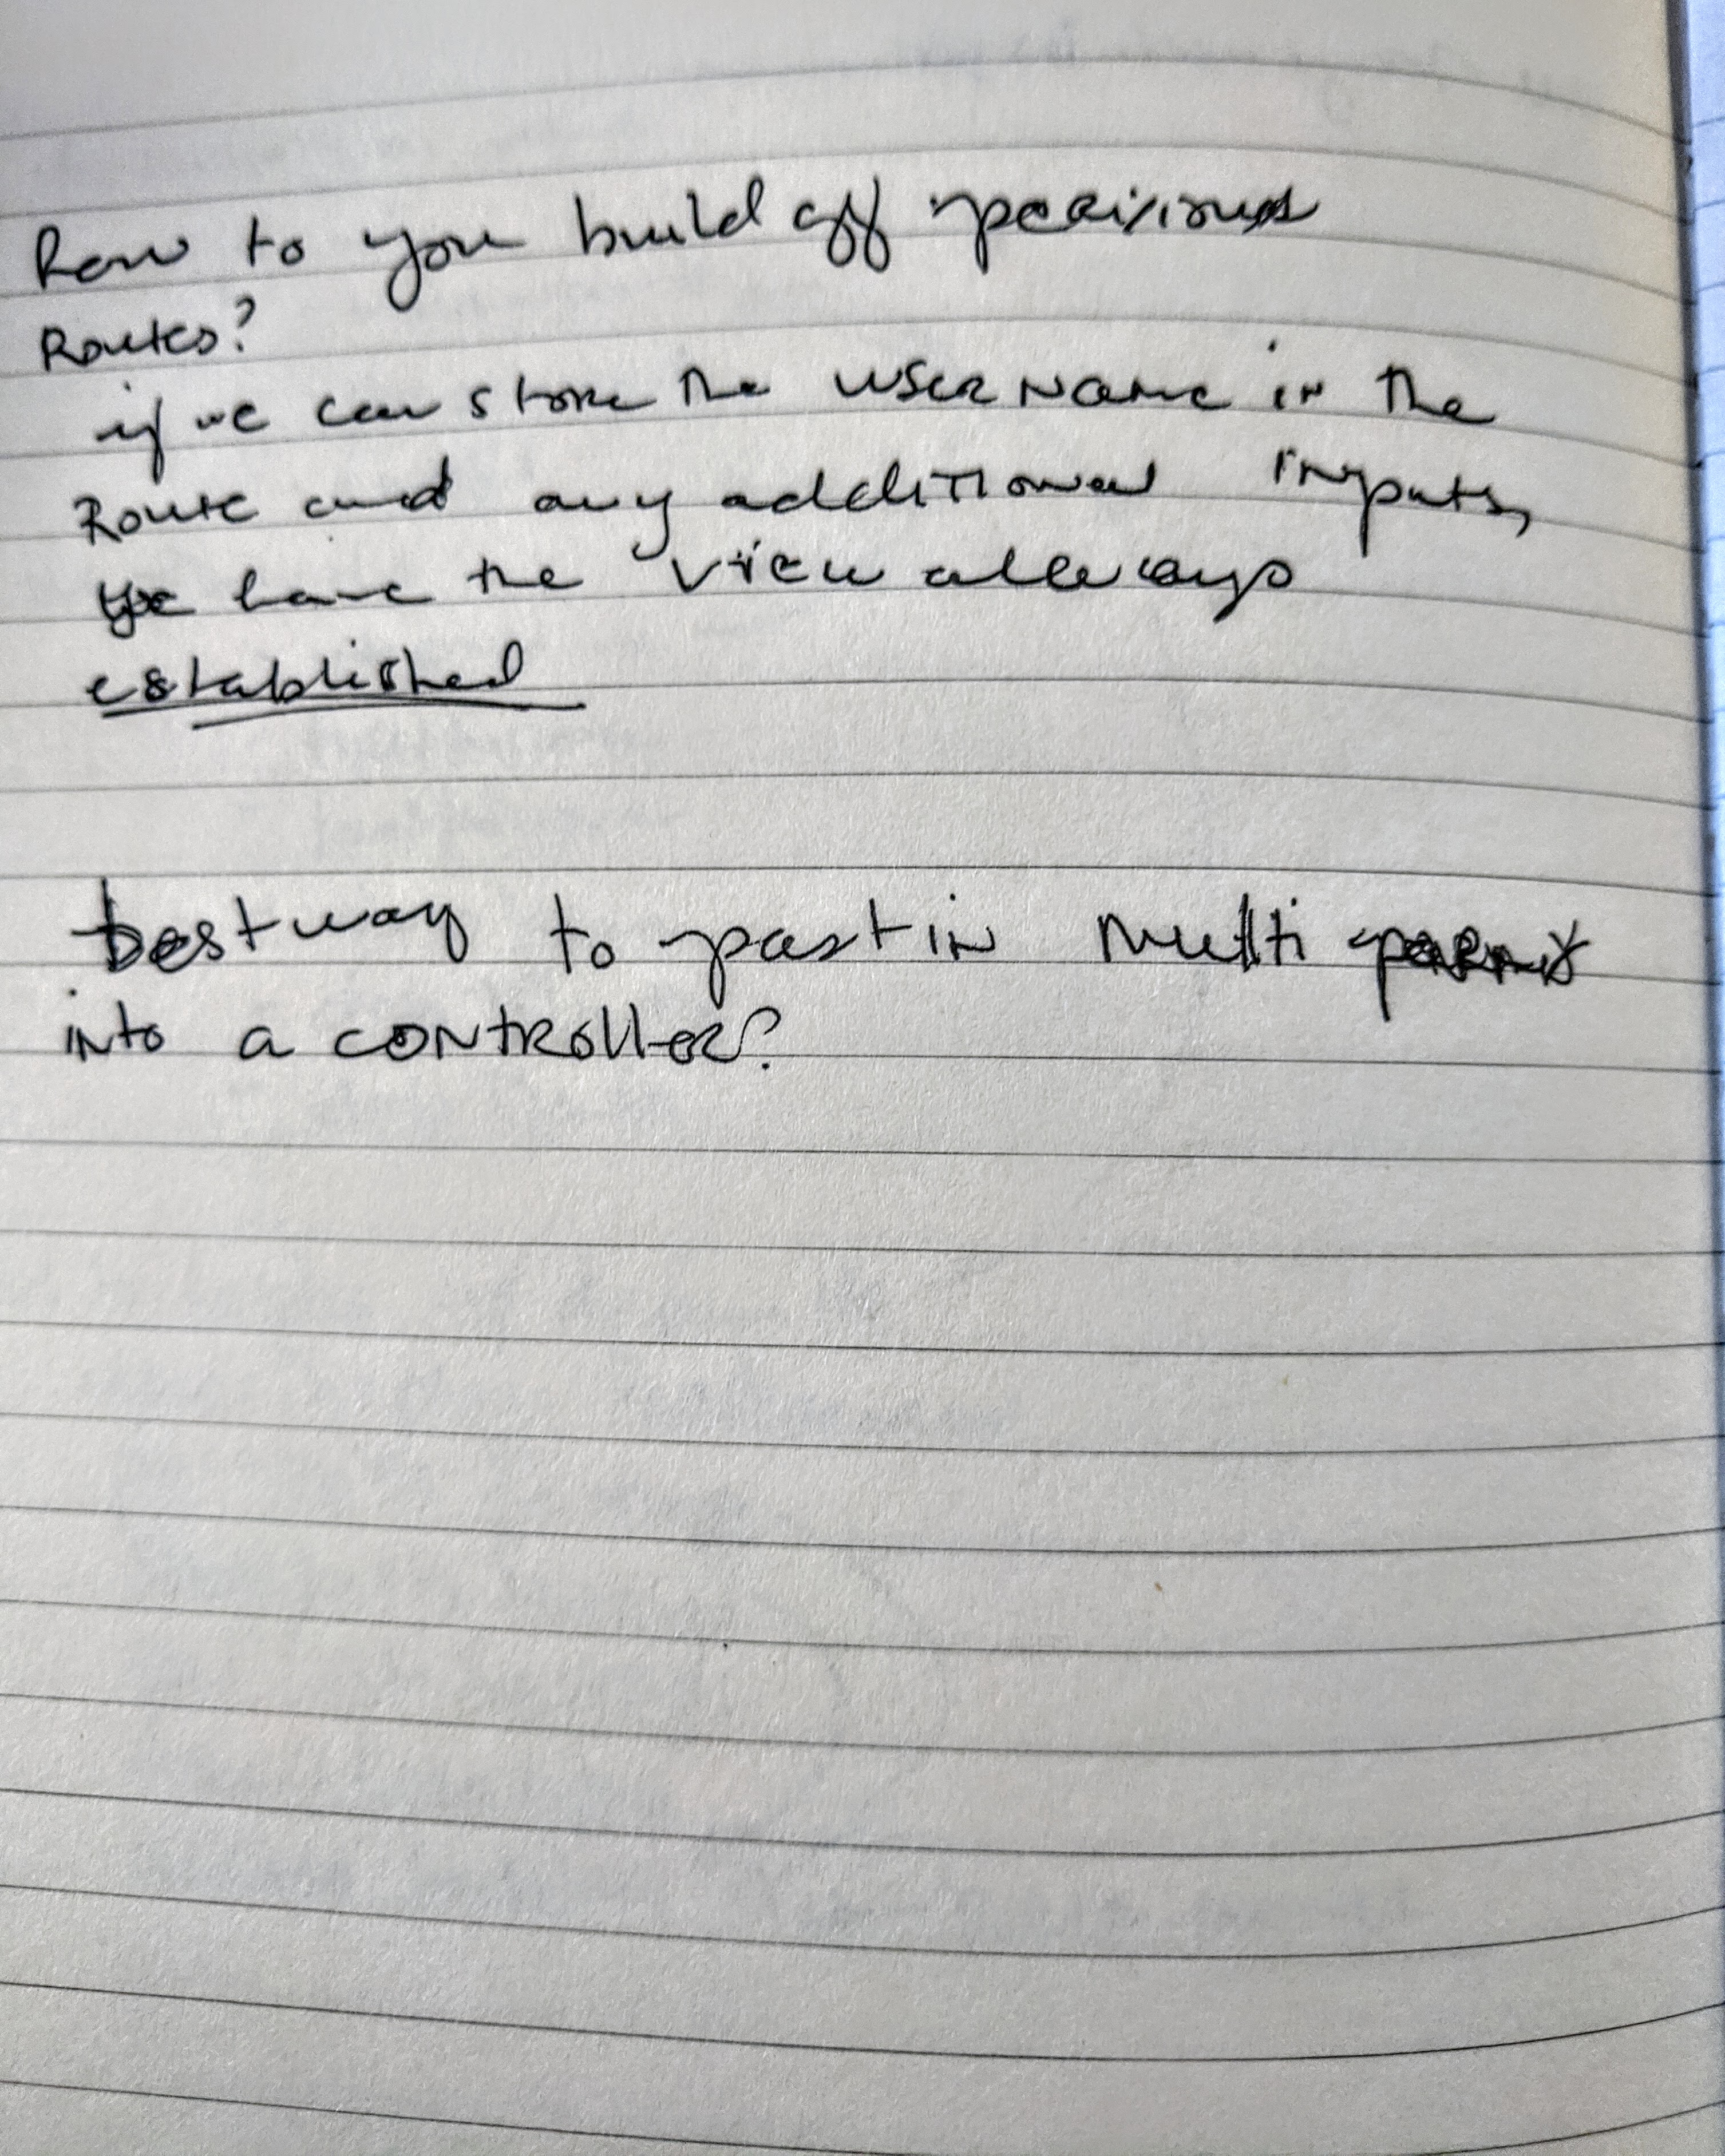 how to you build off perivious
Routes?
if we can store the username in the
Route and any additional inputs,
we have the view allways
established
best way to past in multi params
into a controller?